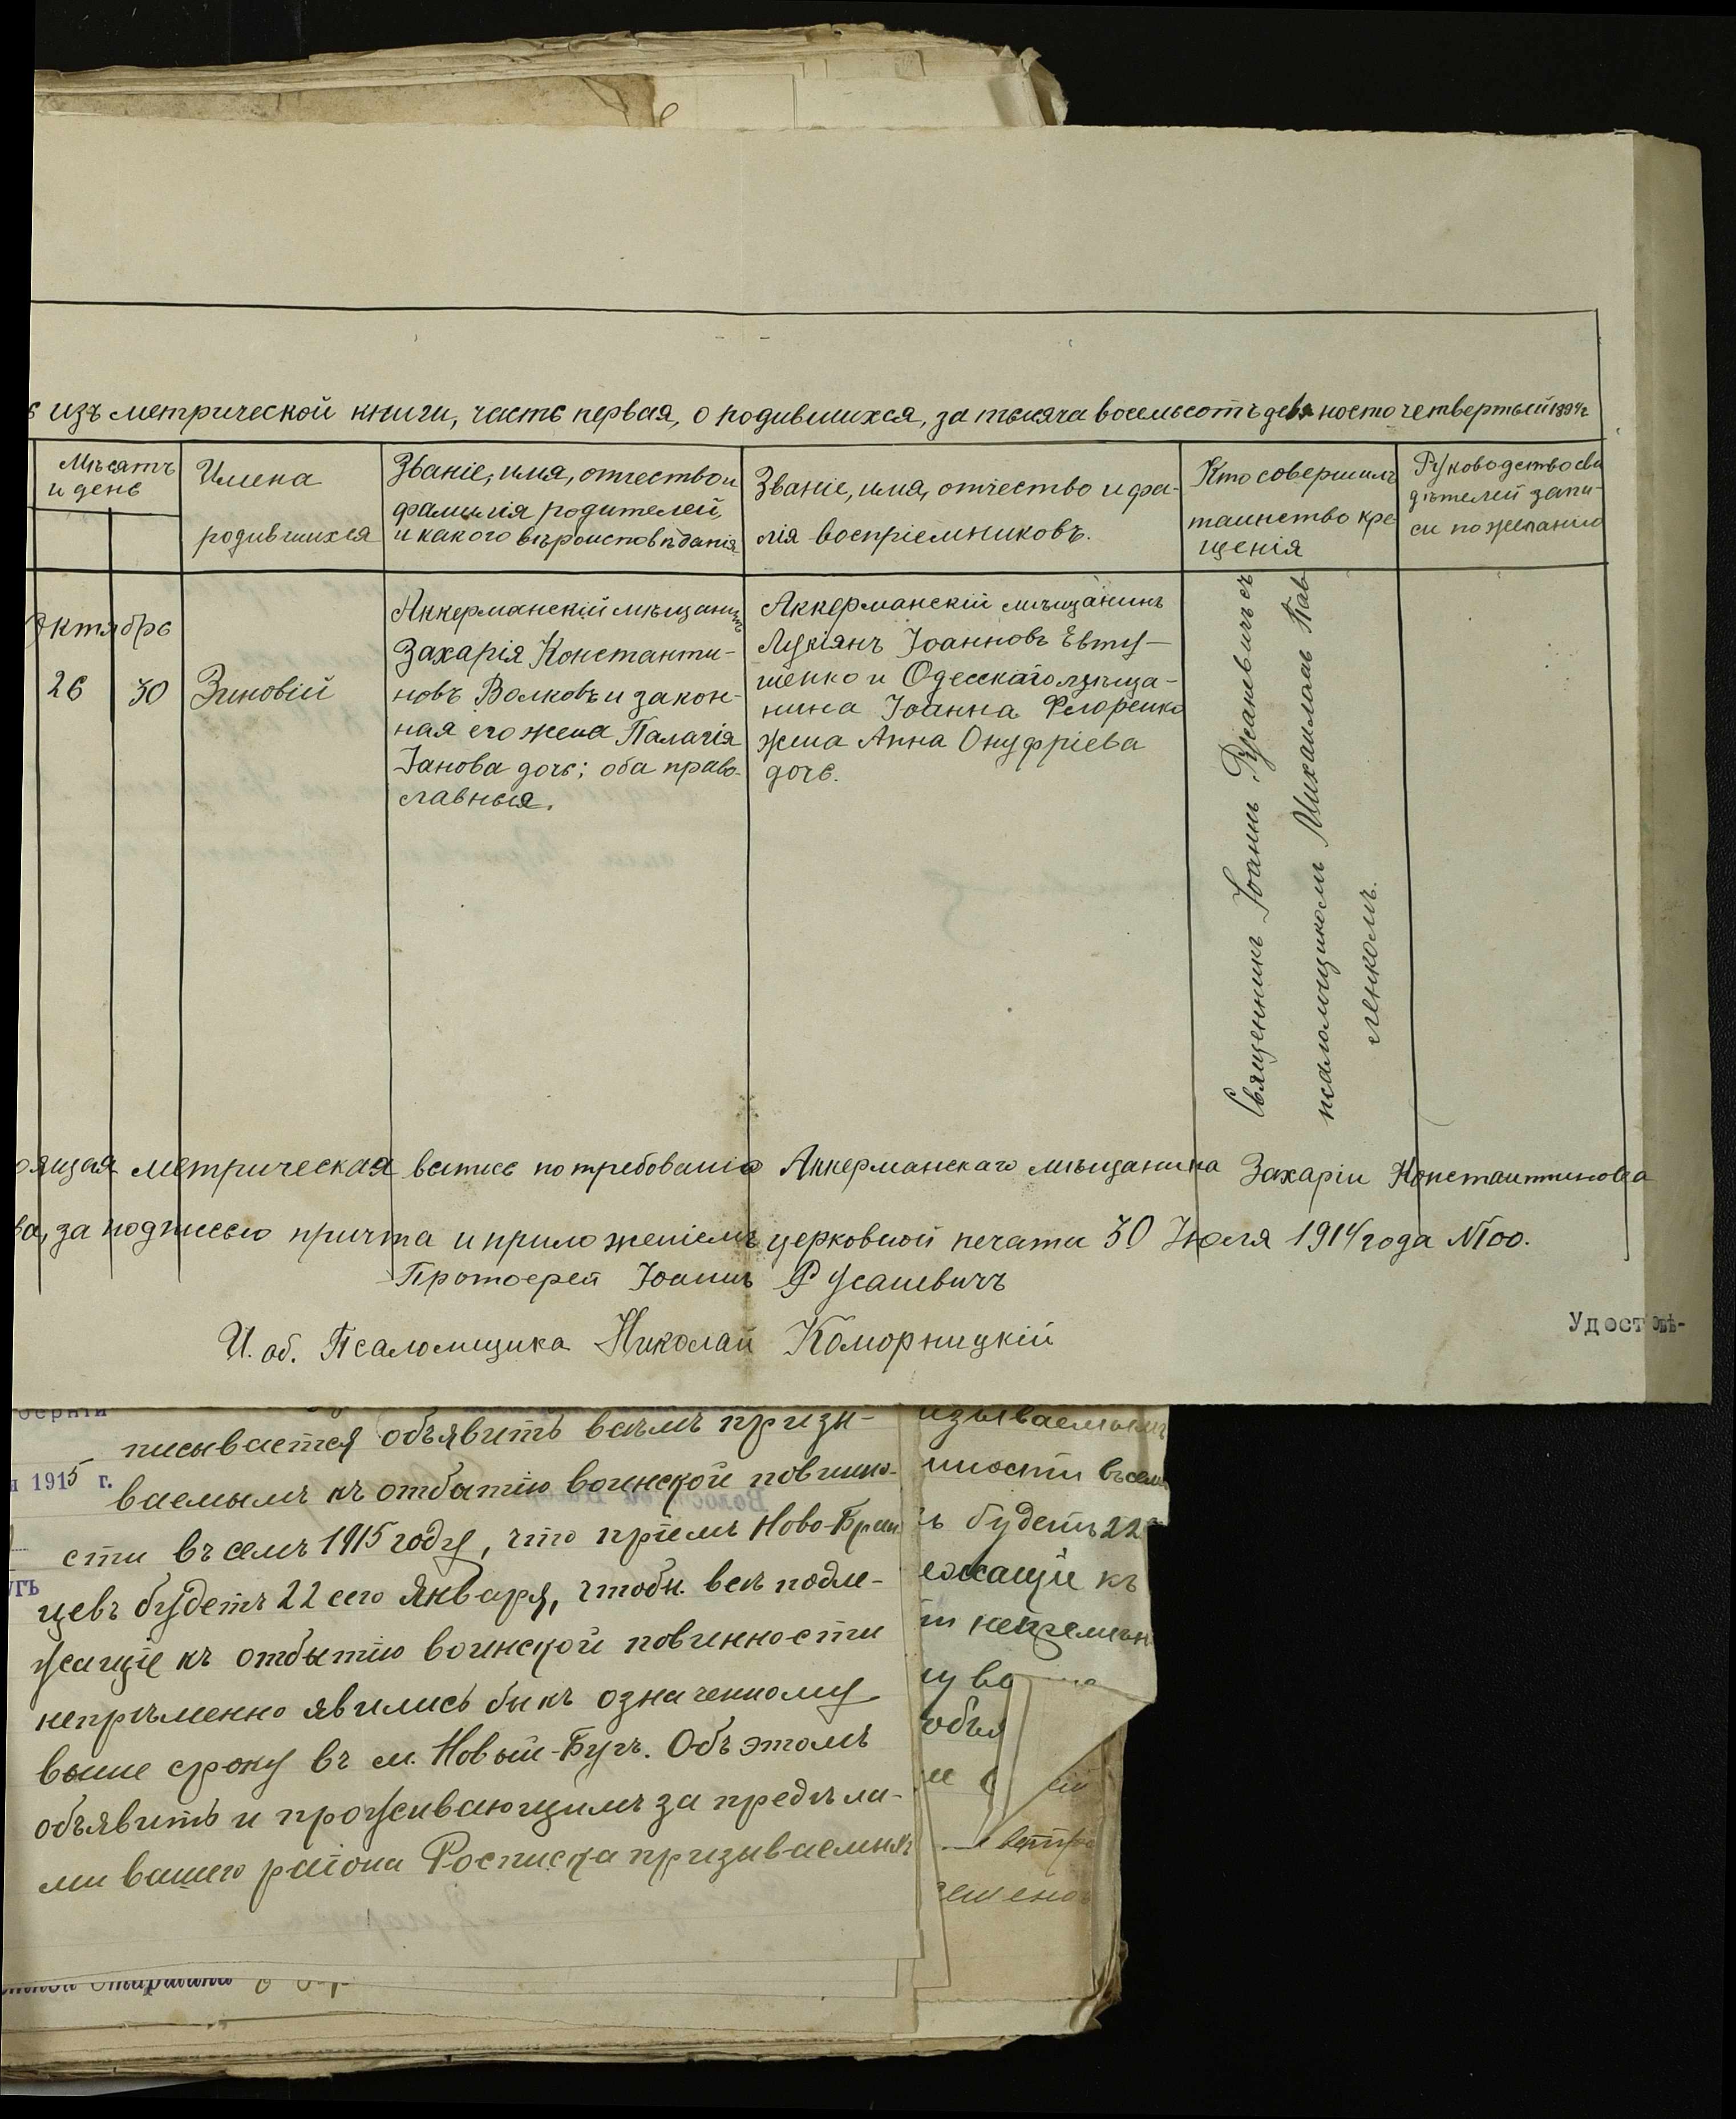 изъ метрической книги, часть первая, о родившихся, за тысяча восемьсотъ девяносто четвертый 1894 г
Мѣсяцъ
и день
Имена
родившихся
Званіе, имя, отчество и
фамилія родителей,
и какого вѣроисповѣданія
Званіе, имя, отчество и фа-
лія воспріемниковъ.
Кто совершилъ
таинство кре
щенія
Руководство сви
дѣтелей запи-
си по желанію
Октябрь
26
30
Зиновій
Аккерманскій мѣщанинъ
Захарія Константи-
новъ Волковъ и закон-
ная его жена Палагія
Іанова дочь; оба право-
славныя.
Аккерманскій мѣщанинъ
Лукіянъ Іоанновъ Евту-
шенко и Одесскаго мѣща-
нина Іоанна Флоренко
жена Анна Онуфріева
дочь.
Священникъ Іоаннъ Русаневичъ съ
псаломщикомъ Михаиломъ Пав
ленкомъ.
оящая метрическая выпись по требованію Аккерманскаго мѣщанина Захаріи Константинова
ва, за подписью причта и приложеніемъ церковной печати 30 Іюля 1914 года №100.
Протоерей Іоаннъ Русаневичъ
И. об. Псаломщика Николай Коморницкій
Удостовѣ-
писывается объявить всѣмъ призы-
1915 г.
ваемымъ къ отбытію воинской повинно-
сти въ семъ 1915 году, что пріемъ Ново-Бран
цевъ будетъ 22 сего Января, чтобы всѣ подле-
жащіе къ отбытію воинской повинности
непрѣменно явились бы къ означенному
выше сроку въ м. Новый-Бугъ. Объ этомъ
объявить и проживающимъ за предѣла-
ми вашего района Росписка призываемыхъ
изываемымъ
нности въ сем
ъ будетъ 22
ежащіе къ
непремѣн
объя